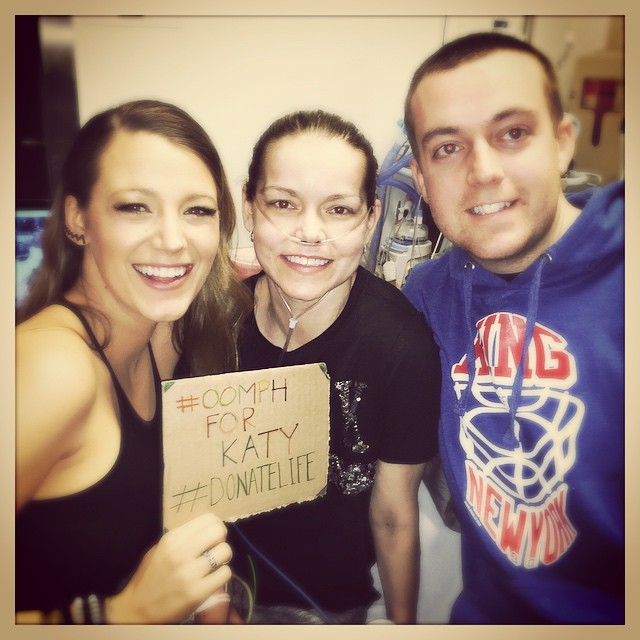 #OOMPH
FOR
KATY
#DONATELIFE
KING
NEW YORK